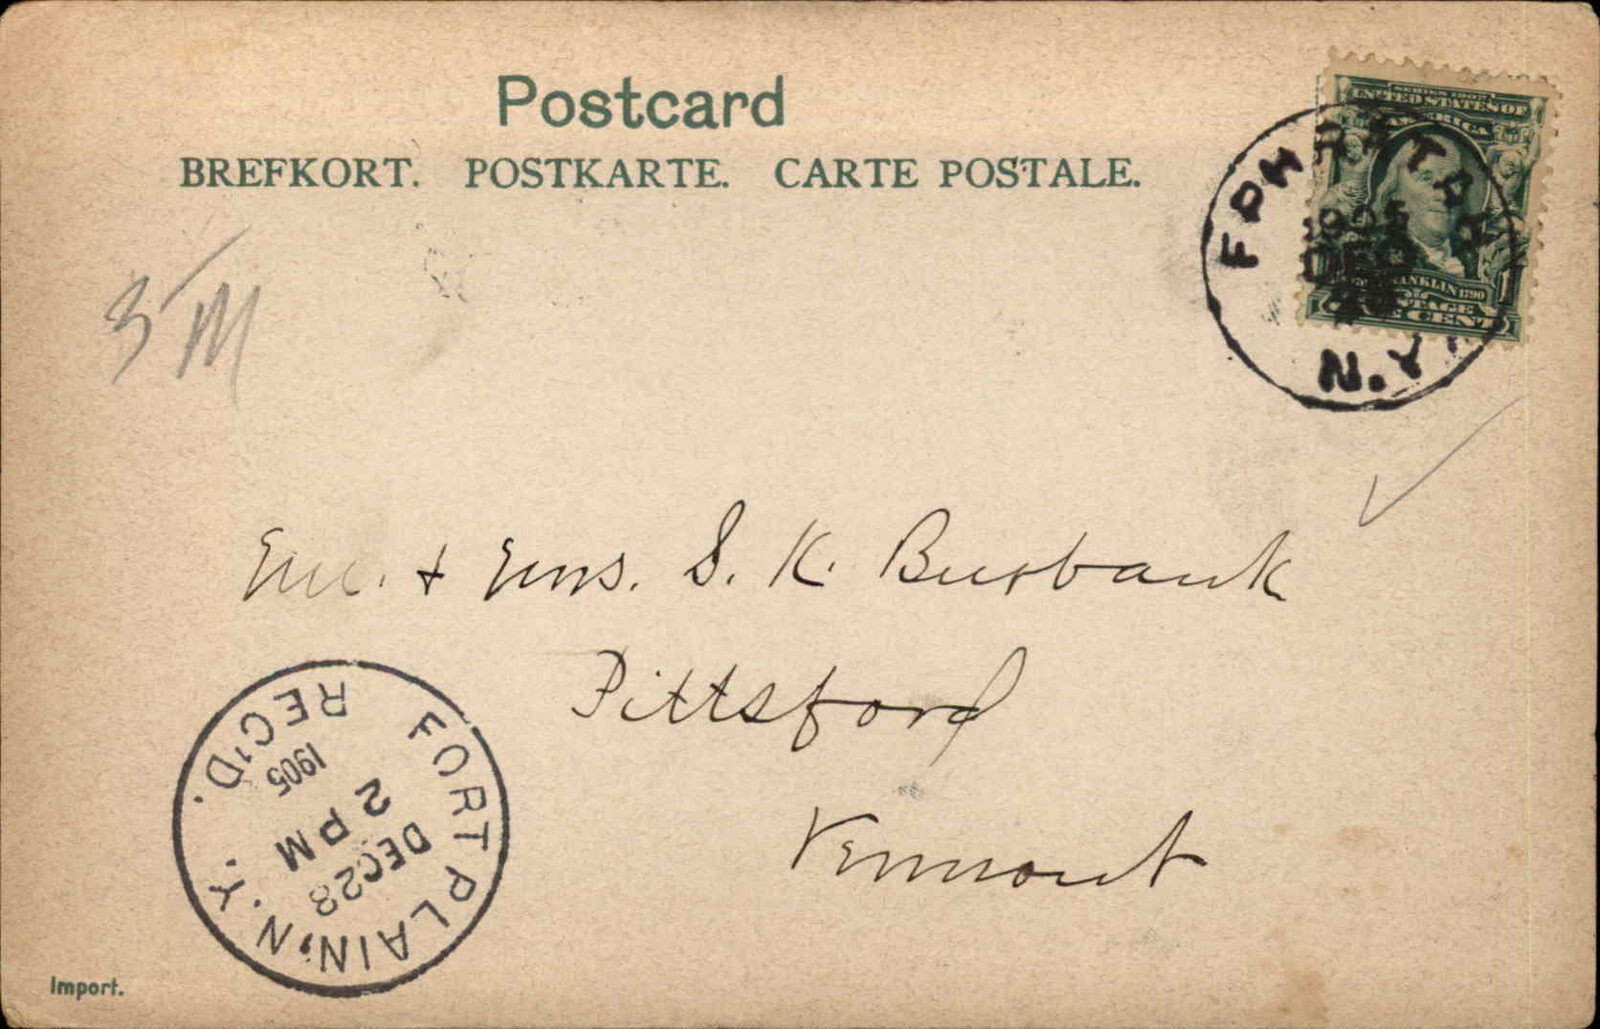 Postcard
BREFKORT. POSTKARTE. CARTE POSTALE.
SERIES 1902
UNITED STATES OF
AMERICA
FRANKLIN 1790
POSTAGE
ONE CENT
EPHRATAH
1905
DEC
28
N.Y.
3 M
Mr. & Mrs. S. K. Burbank
Pittsford
Vermont
FORT PLAIN, N.Y.
REC'D.
DEC 28
2 PM
1905
Import.